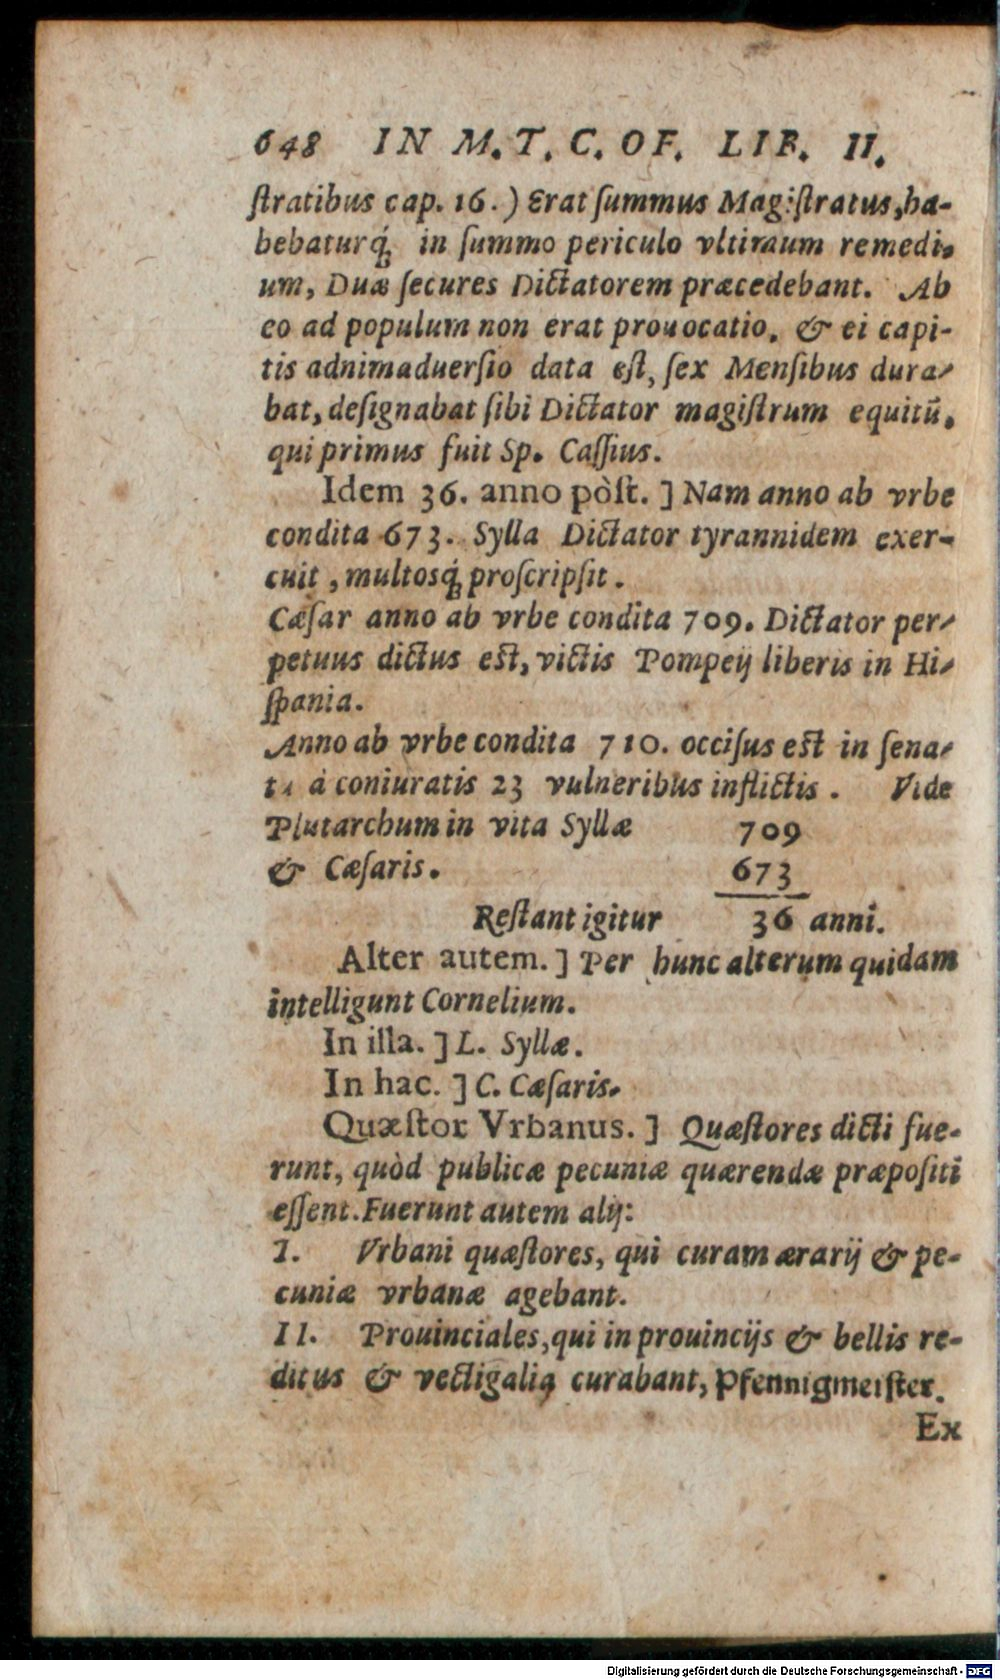 648 IN M. T. C. OF. LIB. II.
ſtratibus cap. 16.) Erat ſummus Magiſtratus, ha-
bebaturq́; in ſummo periculo vltimum remedi-
um, Duæ ſecures Dictatorem præcedebant. Ab
eo ad populum non erat prouocatio, & ei capi-
tis adnimaduerſio data eſt, ſex Menſibus dura-
bat, deſignabat ſibi Dictator magiſtrum equitũ,
qui primus fuit Sp. Caſſius.
Idem 36. anno pòſt. ] Nam anno ab vrbe
condita 673. Sylla Dictator tyrannidem exer-
cuit, multosq́; proſcripſit.
Cæſar anno ab vrbe condita 709. Dictator per-
petuus dictus eſt, victis Pompeij liberis in Hi-
ſpania.
Anno ab vrbe condita 710. occiſus eſt in ſena-
tu à coniuratis 23 vulneribus inflictis. Vide
Plutarchum in vita Syllæ 709
& Cæſaris. 673
Reſtant igitur 36 anni.
Alter autem. ] Per hunc alterum quidam
intelligunt Cornelium.
In illa. ] L. Syllæ.
In hac. ] C. Cæſaris.
Quæſtor Vrbanus. ] Quæſtores dicti fue-
runt, quòd publicæ pecuniæ quærendæ præpoſiti
eſſent. Fuerunt autem alij:
I. Vrbani quæſtores, qui curam ærarij & pe-
cuniæ vrbanæ agebant.
II. Prouinciales, qui in prouincijs & bellis re-
ditus & vectigalia curabant, Pfennigmeiſter.
Ex
Digitalisierung gefördert durch die Deutsche Forschungsgemeinschaft - DFG